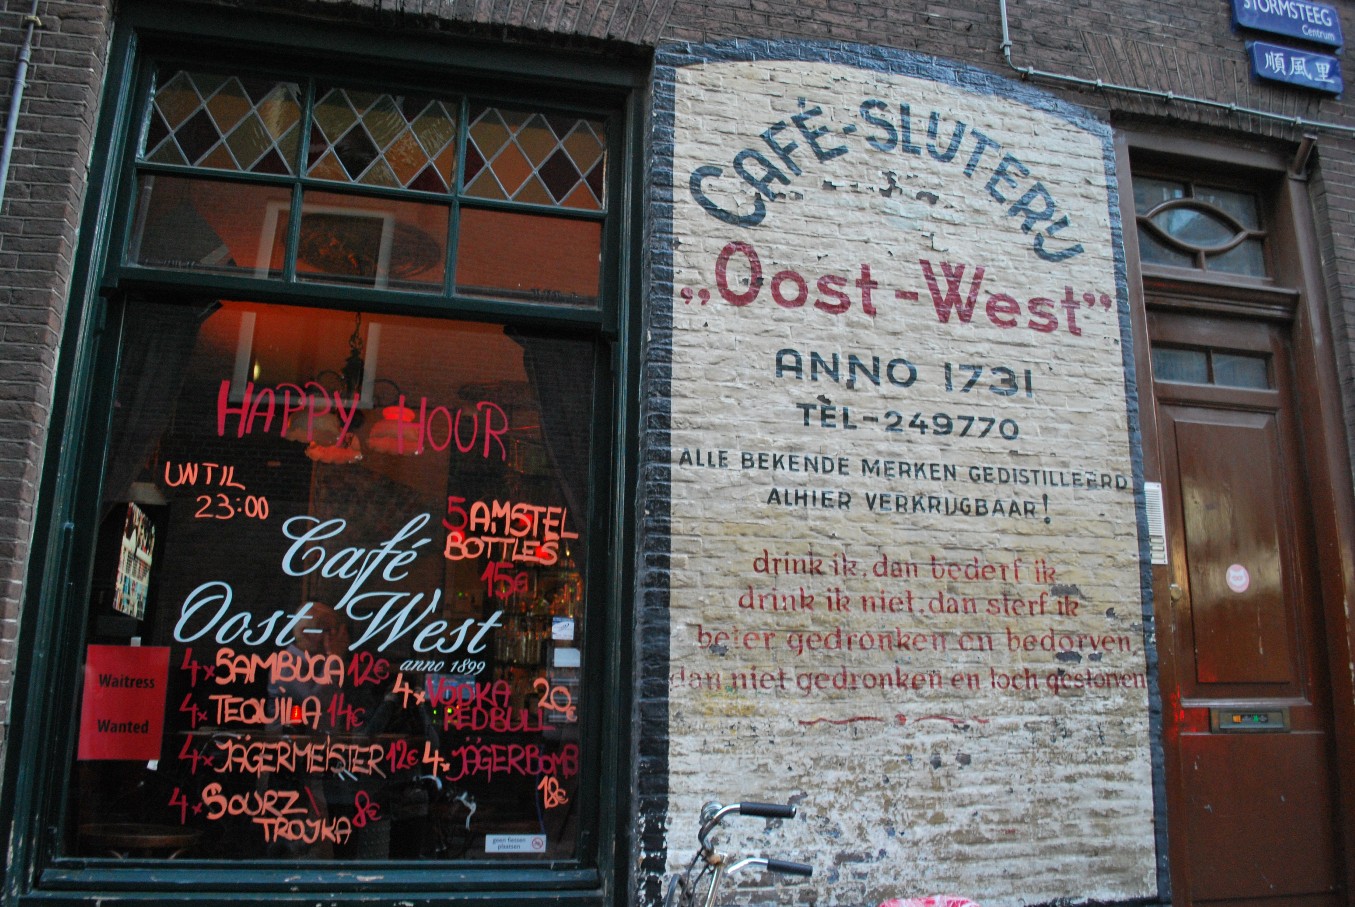 STORMSTEEG
Centrum
順風里
CAFÉ-SLIJTERIJ
„Oost-West”
ANNO 1731
TÈL-249770
ALLE BEKENDE MERKEN GEDISTILLEERD
ALHIER VERKRIJGBAAR!
drink ik, dan bederf ik
drink ik niet, dan sterf ik
beter gedronken en bedorven,
dan niet gedronken en toch gestorven
HAPPY HOUR
UNTIL
23:00
5 AMSTEL
BOTTLES
15€
Café
Oost-West
anno 1899
4x SAMBUCA 12€
4x TEQUILA 14€
4x JÄGERMEISTER 12€
4x SOURZ \
TROJKA 8€
4x VODKA
REDBULL 20€
4x JÄGERBOMB
18€
Waitress
Wanted
geen fietsen
plaatsen